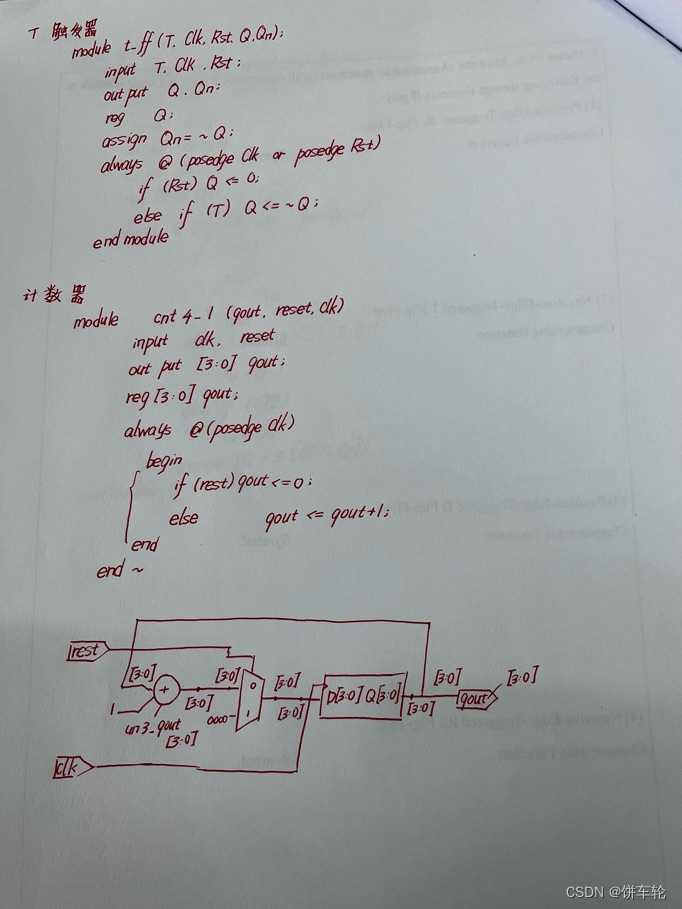 T 触发器
module t-ff (T. Clk, Rst. Q, Qn);
input T. Clk . Rst ;
output Q . Qn;
reg Q;
assign Qn = ~ Q ;
always @ (posedge Clk or posedge Rst)
if (Rst) Q <= 0;
else if (T) Q <= ~ Q ;
end module
计 数 器
module cnt 4-1 (qout, reset, clk)
input clk, reset
out put [3:0] qout;
reg [3:0] qout;
always @ (posedge clk)
begin
if (rest) qout <= 0 ;
else qout <= qout+1;
end
end ~
rest
[3:0]
[3:0]
[3:0]
[3:0]
[3:0]
+
0
D[3:0] Q[3:0]
qout
1
[3:0]
[3:0]
[3:0]
0000
1
un3_qout
[3:0]
clk
CSDN @饼车轮